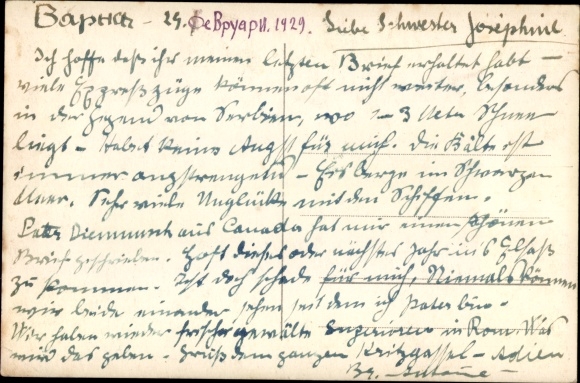 Варна - 29. Февруари. 1929. Liebe Schwester Joséphine
Ich hoffe dass ihr meinen letzten Brief erhaltet habt -
viele Expresszüge können oft nicht weiter, besonders
in der Gegend von Serbien, wo 2-3 Meter Schnee
liegt - Habet keine Angst für mich. Die Kälte ist
immer anstrengend - Eisberge im Schwarzen
Meer. Sehr viele Unglücke mit den Schiffen.
Pater aus Canada hat mir einen schönen
Brief geschrieben. Hofft dieses oder nächstes Jahr ins Elsaß
zu kommen. Ist doch schade für mich, Niemals können
wir beide einander sehen seit dem ich Pater bin.
Wir haben wieder frischgewälte Superioren in Rom. Was
wird das geben. Grüß dem ganzen Kritzgassel - Adieu
Br. Antoine -